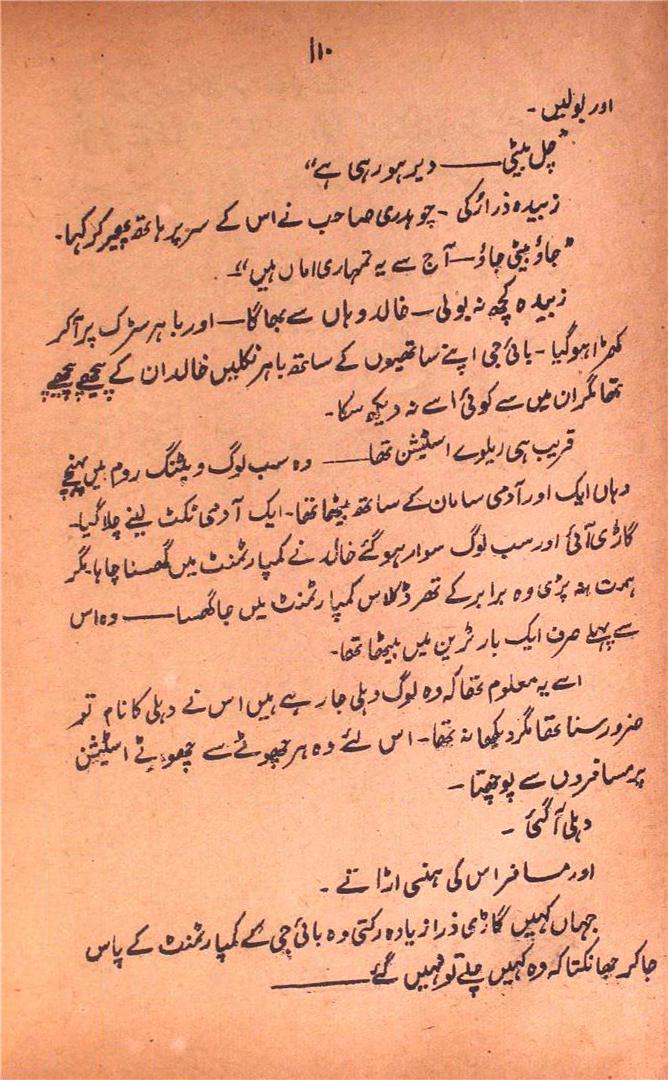 ۱۱۰
اور بولیں۔
”چل بیٹی —— دیر ہو رہی ہے“
زبیدہ ذرا رُکی۔ چوہدری صاحب نے اس کے سر پر ہاتھ پھیر کر کہا۔
”جاؤ بیٹی جاؤ — آج سے یہ تمہاری اماں ہیں“۔
زبیدہ کچھ نہ بولی — خالد وہاں سے بھاگا — اور باہر سڑک پر آ کر
کھڑا ہو گیا۔ بائی جی اپنے ساتھیوں کے ساتھ باہر نکلیں خالد ان کے پیچھے پیچھے
تھا مگر ان میں سے کوئی اسے نہ دیکھ سکا۔
قریب ہی ریلوے اسٹیشن تھا —— وہ سب لوگ ویٹنگ روم میں پہنچے
وہاں ایک اور آدمی سامان کے ساتھ بیٹھا تھا۔ ایک آدمی ٹکٹ لینے چلا گیا۔
گاڑی آئی اور سب لوگ سوار ہو گئے خالد نے کمپارٹمنٹ میں گھسنا چاہا مگر
ہمت نہ پڑی وہ برابر کے تھرڈ کلاس کمپارٹمنٹ میں جا گھسا —— وہ اس
سے پہلے صرف ایک بار ٹرین میں بیٹھا تھا۔
اسے یہ معلوم تھا کہ وہ لوگ دہلی جا رہے ہیں اس نے دہلی کا نام تو
ضرور سنا تھا مگر دیکھا نہ تھا۔ اس لئے وہ ہر چھوٹے سے چھوٹے اسٹیشن
پر مسافروں سے پوچھتا۔
دہلی آ گئی ۔
اور مسافر اس کی ہنسی اڑاتے ۔
جہاں کہیں گاڑی ذرا زیادہ رکتی وہ بائی جی کے کمپارٹمنٹ کے پاس
جا کر جھانکتا کہ وہ کہیں چلے تو نہیں گئے ——